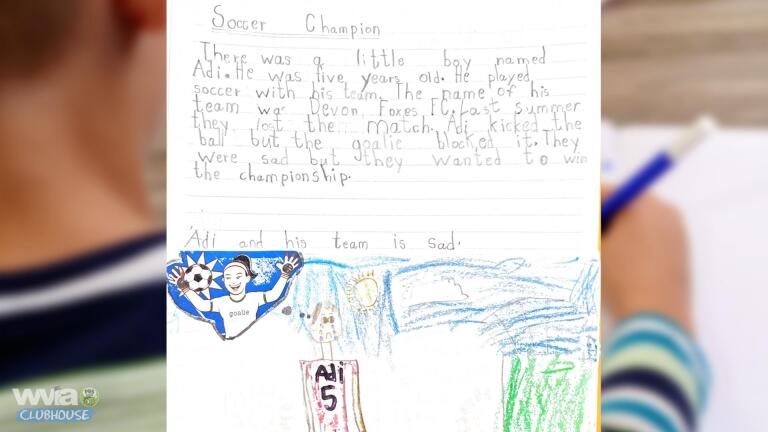 Soccer Champion
There was a little boy named
Adi. He was five years old. He played
soccer with his team. The name of his
team was Devon Foxes FC. Last summer
they lost the match. Adi kicked the
ball but the goalie blocked it. They
were sad but they wanted to win
the championship.
Adi and his team is sad.
goalie
Adi
5
wvia PBS KIDS
CLUBHOUSE